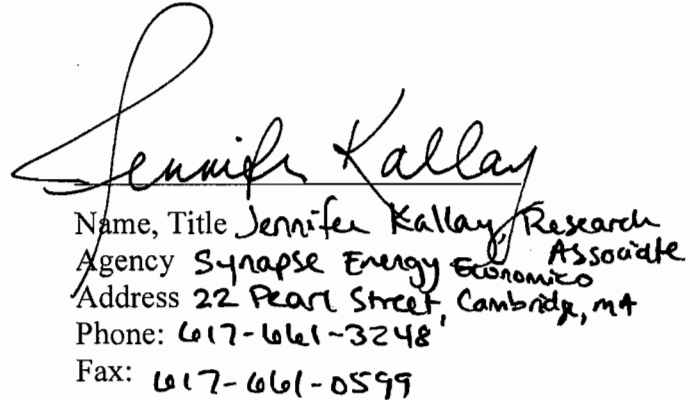 Jennifer Kallay
Name, Title Jennifer Kallay, Research Associate
Agency Synapse Energy Economics
Address 22 Pearl Street, Cambridge, MA
Phone: 617-661-3248
Fax: 617-661-0599